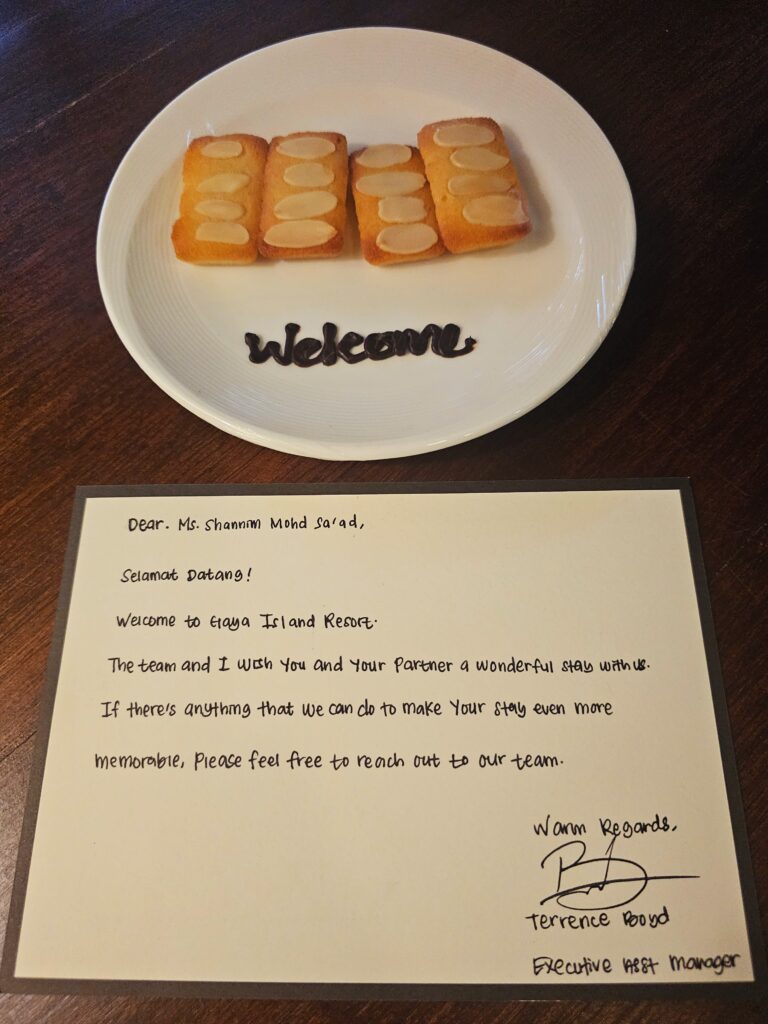 Welcome
Dear. Ms. Shannm Mohd Sa'ad,
Selamat Datang!
Welcome to Gaya Island Resort.
The team and I wish you and your partner a wonderful stay with us.
If there's anything that we can do to make your stay even more
memorable, please feel free to reach out to our team.
Warm Regards,
Terrence Boyd
Executive Asst Manager